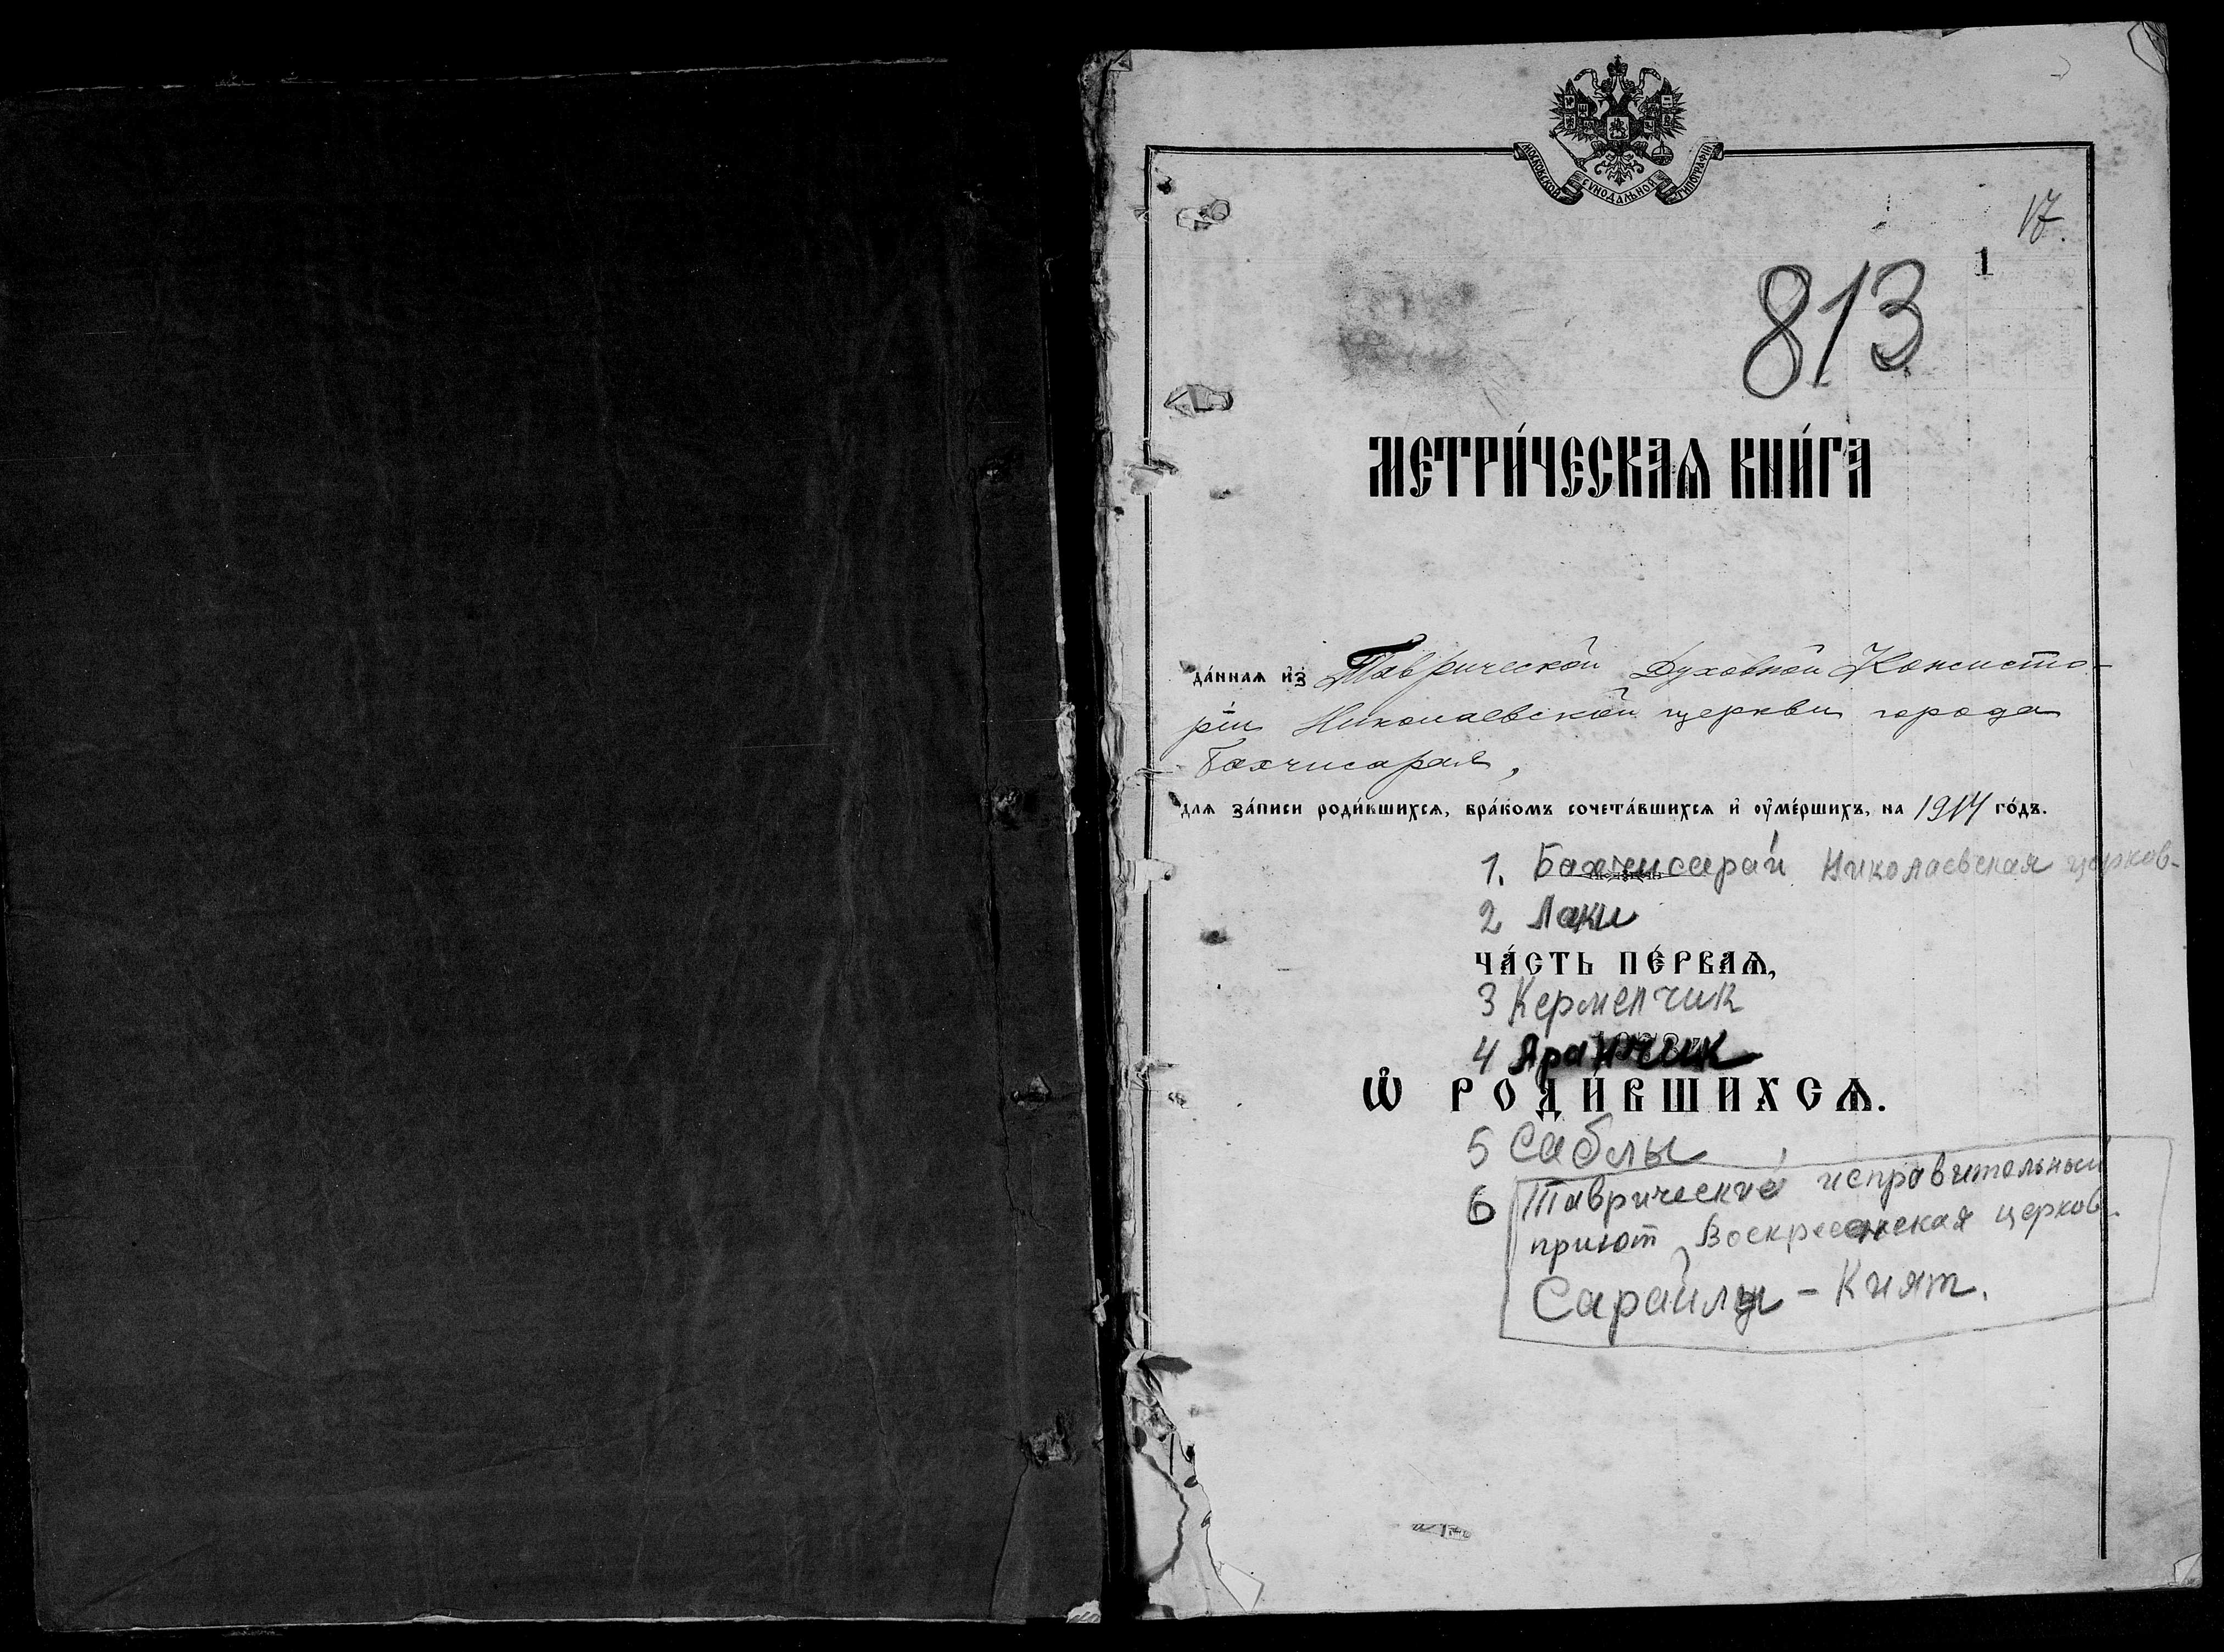 МОСКОВСКОЙ СѴНОДАЛЬНОЙ ТИПОГРАФІИ
17.
1
813
МЕТРИ́ЧЕСКАѦ КНИ́ГА
да́ннаѧ и҆з̾ Таврической Духовной Консисто-
ріи Николаевской церкви города
Бахчисарая,
длѧ за́писи роди́вшихсѧ, бра́комъ сочета́вшихсѧ и҆ ᲂу҆ме́ршихъ, на 1914 го́дъ.
1. Бахчисарай Николаевская церков-
2 Лаки
ЧА́СТЬ ПЕ́РВАѦ,
3 Керменчик
4 Яранчик
Ѡ҆ РОДИ́ВШИХСѦ.
5 Саблы
6 Таврический исправительный
приют Воскресенская церков.
Сарайлы - Кият.